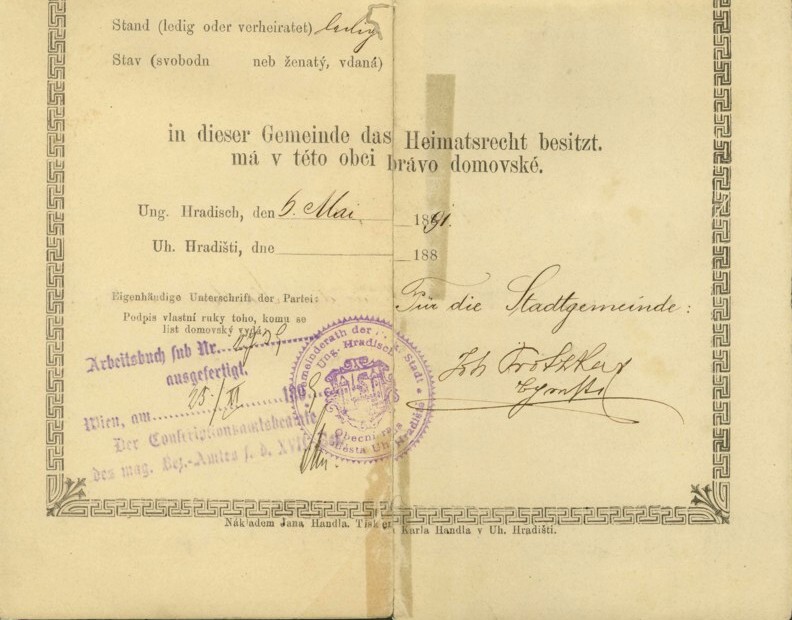 Stand (ledig oder verheiratet) ledig
Stav (svobodn neb ženatý, vdaná)
in dieser Gemeinde das Heimatsrecht besitzt.
má v této obci právo domovské.
Ung. Hradisch, den 6. Mai 1891.
Uh. Hradišti, dne 188
Eigenhändige Unterschrift der Partei:
Podpis vlastní ruky toho, komu se
list domovský vydá
Für die Stadtgemeinde:
Arbeitsbuch sub Nr.
ausgefertigt.
Wien, am 25./II 190
Der Conscriptionsamtsbeamte
des mag. Bez.-Amtes f. d. XVII. Bez.
Gemeinderath der Stadt
Ung. Hradisch
Obecní rada
města Uh. Hradiště
Nákladem Jana Handla. Tiskem Karla Handla v Uh. Hradišti.